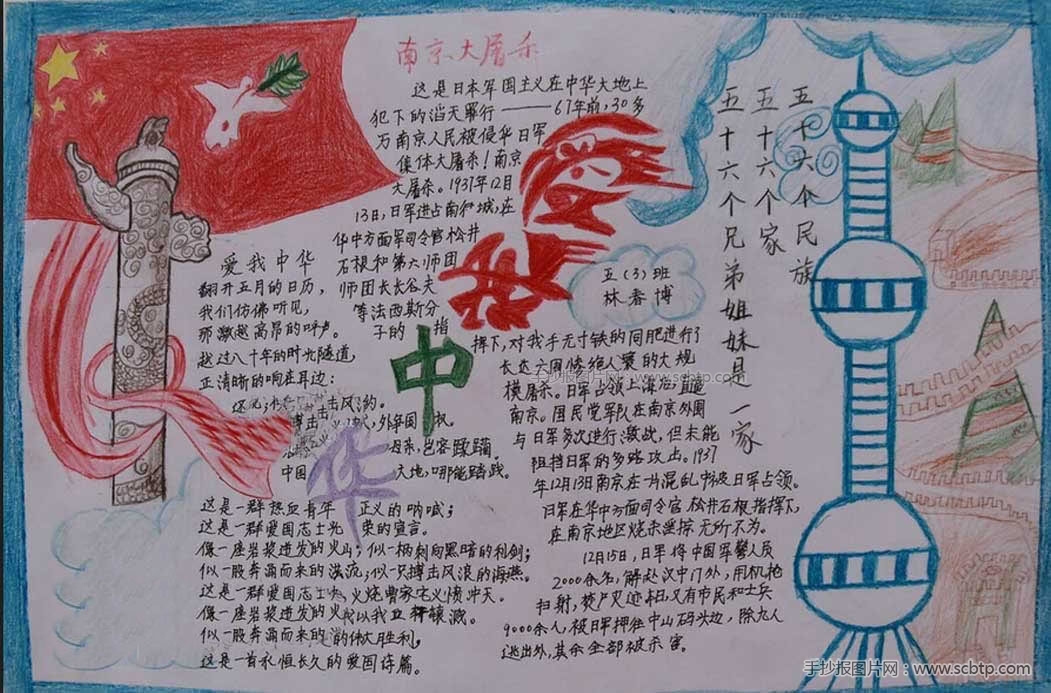 南京大屠杀
这是日本军国主义在中华大地上
犯下的滔天罪行——67年前,30多
万南京人民被侵华日军
集体大屠杀!南京
大屠杀。1937年12月
13日,日军进占南京城,在
华中方面军司令官松井
石根和第六师团
师团长谷夫
等法西斯分
子的 指
挥下,对我手无寸铁的同胞进行了
长达六周惨绝人寰的大规
模屠杀。日军占领上海后直逼
南京。国民党军队在南京外围
与日军多次进行激战,但未能
阻挡日军的多路攻击。1937
年12月13日南京在一片混乱中被日军占领。
日军在华中方面司令官松井石根指挥下,
在南京地区烧杀淫掠无所不为。
12月15日,日军将中国军警人员
2000余名,解赴汉中门外,用机枪
扫射,焚尸灭迹 又有市民和士兵
9000余人,被日军押往中山码头边,除九人
逃出外,其余全部被杀害。
爱我中华
爱我中华
翻开五月的日历,
我们仿佛听见,
那激越高昂的呼声。
越过八十年的时光隧道,
正清晰的响在耳边:
击风
搏击
母亲,岂容蹂躏
中国 大地,哪能踏践。
这是一群热血青年 正义的呐喊;
这是一群爱国志士光 荣的宣言。
像一座岩浆迸发的火山;似一柄刺向黑暗的利剑;
似一股奔涌而来的洪流;似一只搏击风浪的海燕。
这是一群爱国志士 火烧曹家宅义愤冲天。
像一座岩浆迸发的火
似一股奔涌而来的 伟大胜利,
这是一首永恒长久的爱国诗篇。
五(3)班
林春博
五十六个民族
五十六个家
五十六个兄弟姐妹是一家
手抄报图片网 www.scbtp.com
手抄报图片网:www.scbtp.com